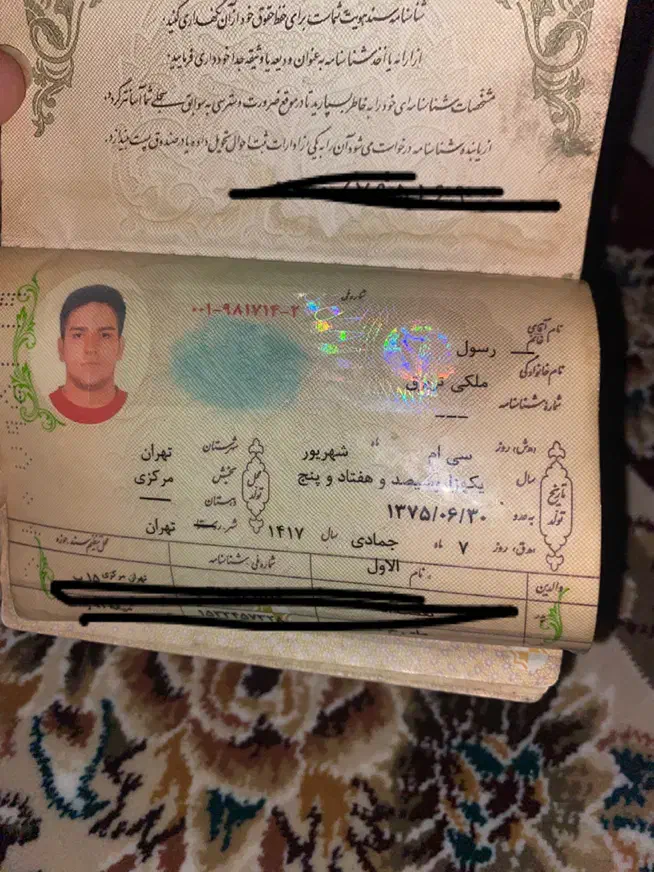 شناسنامه سند هویت شماست برای حفظ حقوق خود از آن نگهداری کنید.
از ارائه یا اخذ شناسنامه به عنوان ودیعه یا وثیقه جدا خودداری فرمایید.
مشخصات شناسنامه‌ای خود را به خاطر بسپارید تا در موقع ضرورت دسترسی به سوابق سجلی شما آسانتر گردد.
از یابنده شناسنامه درخواست می شود آن را به یکی از ادارات ثبت احوال تحویل داده یا در صندوق پست بیندازد.
شماره ملی
۰۰۱-۹۸۱۷۱۴-۲
نام آقای خانم رسول
نام خانوادگی ملکی
شماره شناسنامه ---
تاریخ تولد
(ه‍.ش) روز سی ام ماه شهریور
سال یکهزار و سیصد و هفتاد و پنج
به عدد ۱۳۷۵/۰۶/۳۰
(ه‍.ق) روز ۷ ماه جمادی الاول سال ۱۴۱۷
محل تولد
شهرستان تهران
بخش مرکزی
دهستان —
شهر تهران
والدین نام شماره ملی / ش.شناسنامه محل تنظیم سند / حوزه
پدر